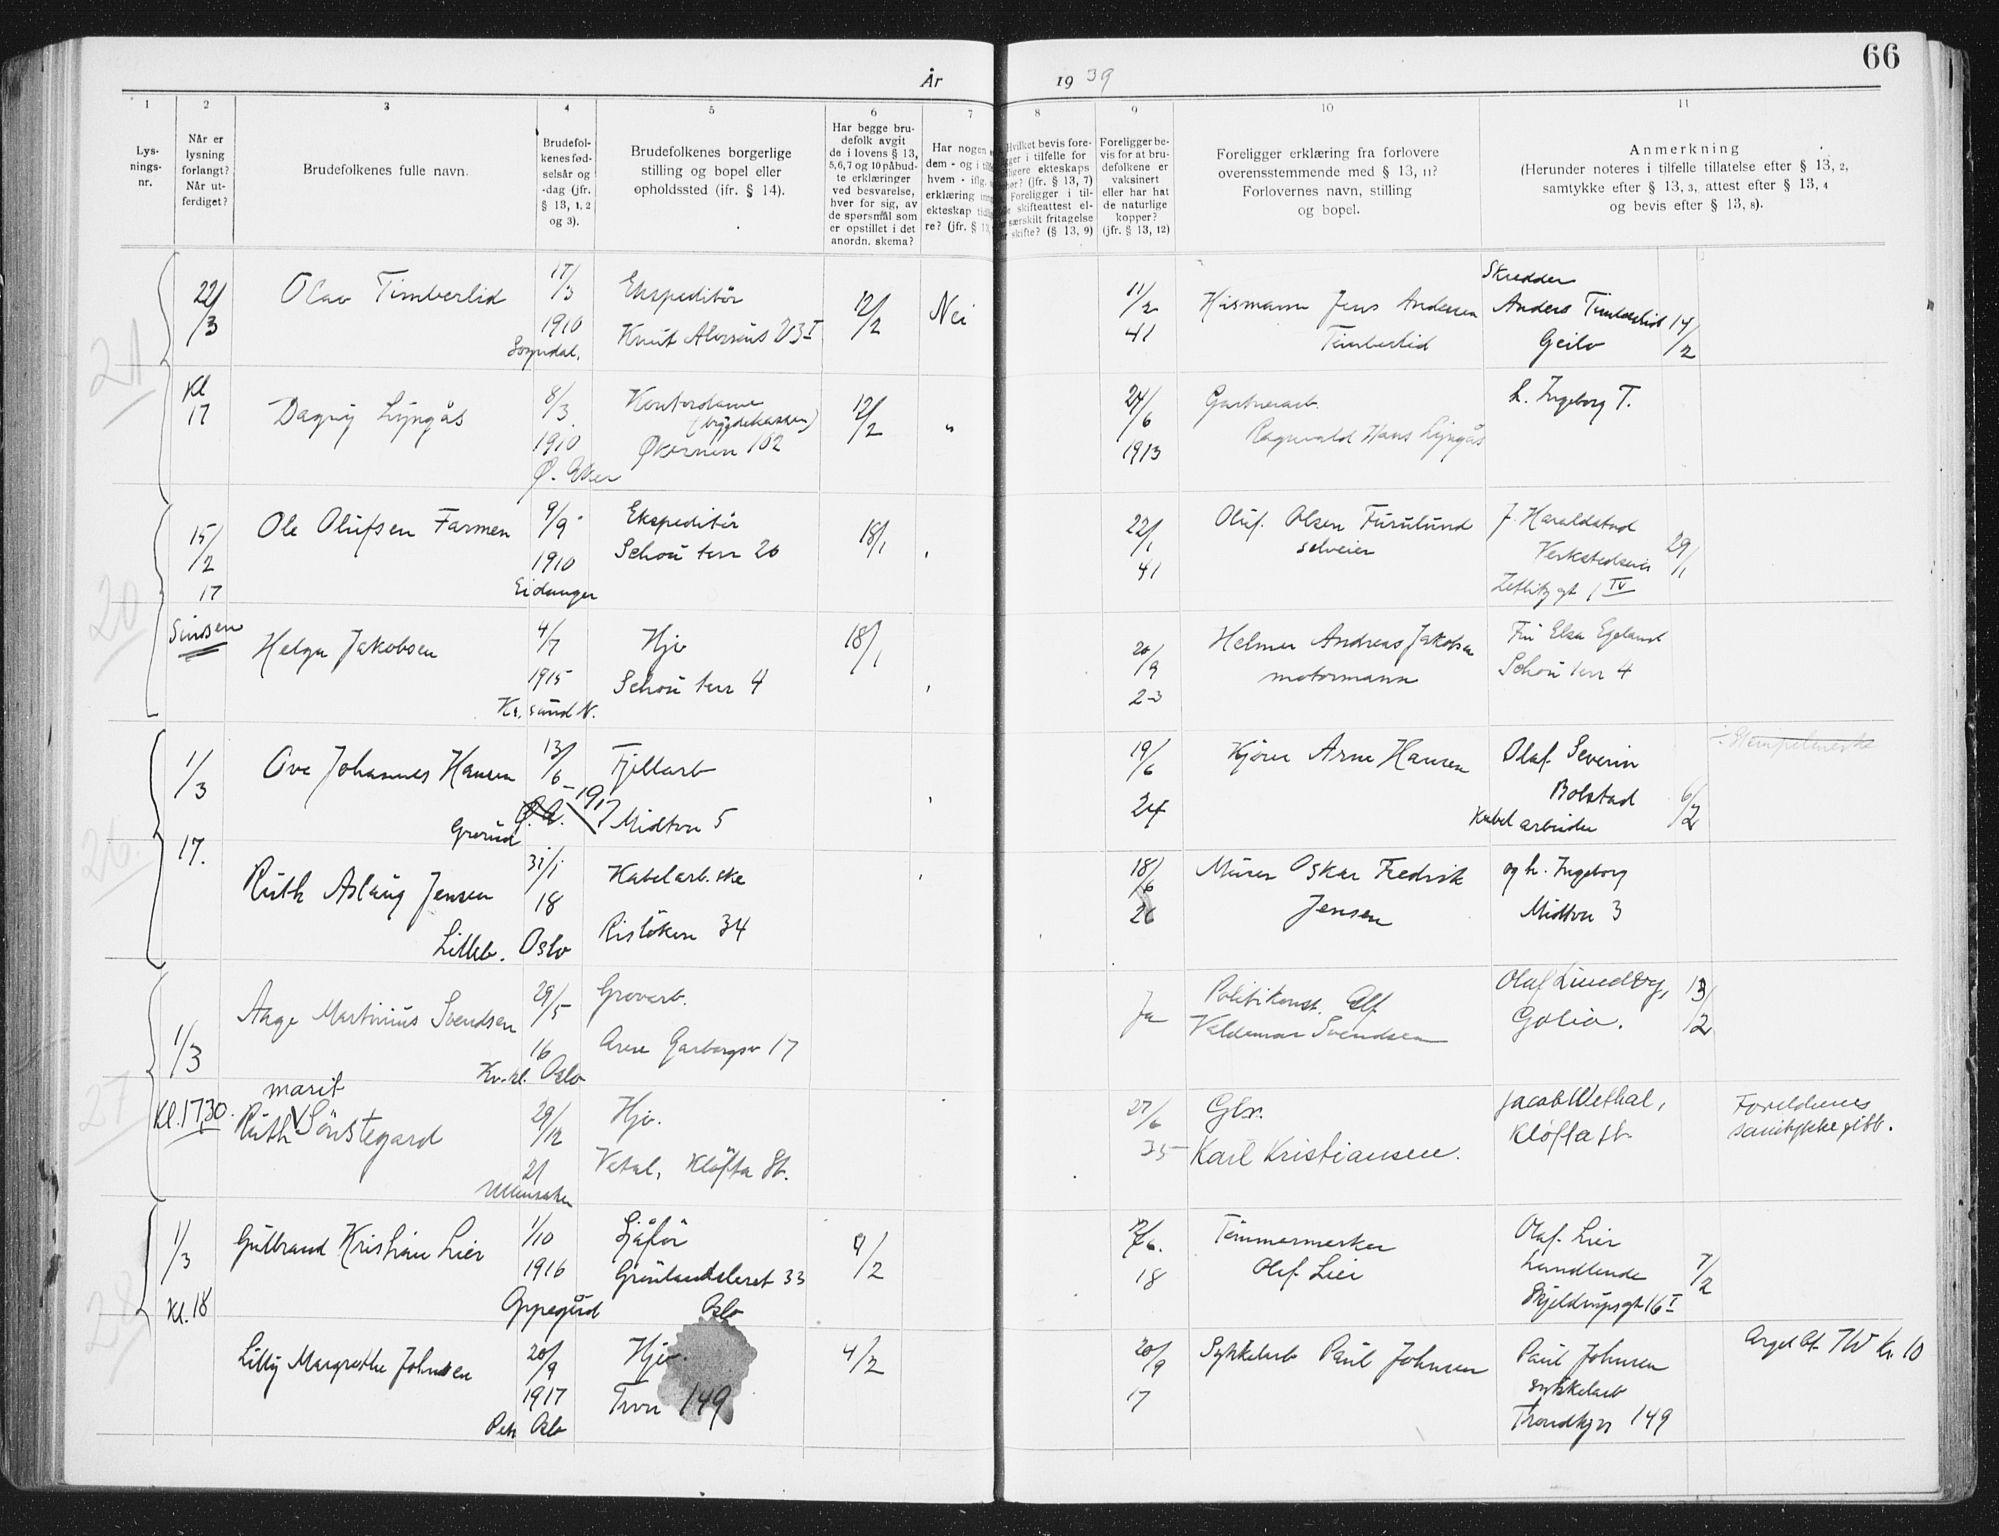 66
År 1939
1 2 3 4 5 6 7 8 9 10 11
Lys-
nings-
nr.
Når er
lysning
forlangt?
Når ut-
ferdiget?
Brudefolkenes fulle navn.
Brudefol-
kenes fød-
selsår og
-dag (jfr.
§ 13, 1, 2
og 3).
Brudefolkenes borgerlige
stilling og bopel eller
opholdssted (ifr. § 14).
Har begge bru-
defolk avgit
de i lovens § 13,
5,6,7 og 10 påbud-
te erklæringer
ved besvarelse,
hver for sig, av
de spørsmål som
er opstillet i det
anordn. skema?
Har nogen
dem - og i
hvem - iflg.
erklæring
ekteskap
re? (jfr. § 13,
Hvilket bevis fore-
ger i tilfelle for
ligere ekteskaps
hør? (jfr. § 13, 7)
Foreligger i til-
skifteattest el-
særskilt fritagelse
skifte? (§ 13, 9)
Foreligger be-
vis for at bru-
defolkene er
vaksinert
eller har hat
de naturlige
kopper?
(jfr. § 13, 12)
Foreligger erklæring fra forlovere
overensstemmende med § 13, 11?
Forlovernes navn, stilling
og bopel.
Anmerkning
(Herunder noteres i tilfelle tillatelse efter § 13, 2,
samtykke efter § 13, 3, attest efter § 13, 4
og bevis efter § 13, 8).
21
22/3
Olav Timberlid
17/3
1910
Sogndal.
Ekspeditør
Knut Alvssøns v 3 I
12/2
Nei
11/2
41
Husmann Jens Andersen
Timberlid
Skredder
Anders Timberlid
Geilo
14/2
Kl
17
Dagny Lyngås
8/3
1910
Ø. Eker
Kontordame
(bygdekassen)
Økernvn 102
12/2
"
24/6
1913
Gartnerarb.
Ragnvald Hans Lyngås
h. Ingeborg T.
20
15/2
17
Sinsen
Ole Olufsen Farmen
9/9
1910
Eidanger
Ekspeditør
Schou terr 26
18/1
22/1
41
Oluf Olsen Furulund
selveier
J. Haraldstad
29/1
Helga Jakobsen
4/7
1915
Kr.sund N.
Hjv
Schou terr 4
18/1
20/9
23
Helmer Andreas Jakobsen
motormann
Fru Elsa Egeland
Schou terr 4
26.
1/3
17.
Ove Johannes Hansen
Grorud
13/6 - 1917
Fjellarb
Midtvn 5
19/6
24
Kjører Arne Hansen
Olaf Severin
Bolstad
Kabelarbeider
6/2
Ruth Aslaug Jensen
Lilleb.
31/1
18
Oslo
Kabelarb.ske
Risløkvn 34
18/6
26
Murer Oskar Fredrik
Jensen
og h. Ingeborg
Midtvn 3
27
1/3
Kl. 17,30.
Aage Martinius Svendsen
29/5
16
Oslo
Grovarb.
Arne Garborgsv 17
Ja
Politikonst. Alf
Valdemar Svendsen
Olaf Lundby,
Golia.
13/2
marit
Ruth V Sønstegard
29/12
21
Hjv.
Vetal, Kløfta St.
27/6
35
Gbr.
Karl Kristiansen.
Jacob Wethal,
Kløfta st.
Foreldrenes
samtykke vedl.
28
1/3
Kl. 18
Gulbrand Kristian Lier
1/10
1916
Oppegård
Sjåfør
Grønlandsleret 33
Oslo
9/2
18
Tømmermerker
Olaf Lier
Olaf Lier
Skjeldrupsgt 16 I
7/2
Lilly Margrethe Johnsen
20/9
1917
Oslo
Hjv.
Tron 149
4/2
20/9
17
Sykkelarb Paul Johnsen
Paul Johnsen
sykkelarb
Trondhjv 149
Kr. 10